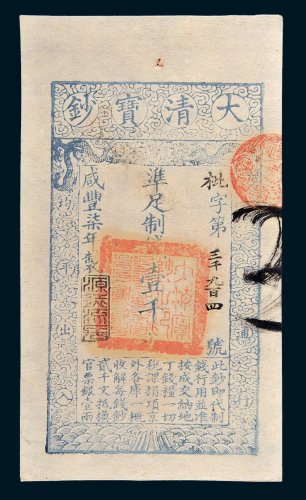 大清寶鈔
通行
字第三千九百四號
準足制錢壹千
咸豐柒年製
平出入
此鈔即代制
錢行用並准
按成交納地
丁錢糧一切
稅課捐項京
外各庫一概
收解每錢鈔
貳千文抵換
官票銀壹兩